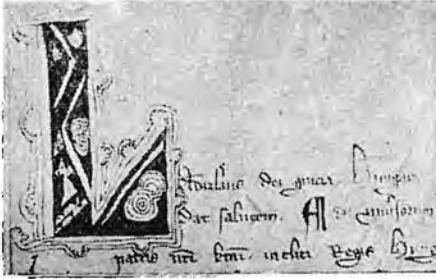 Ladizlaus dei gracia Hungar
Dat salutem. Ad universorum
patris nri kmi incliti Regis Hung